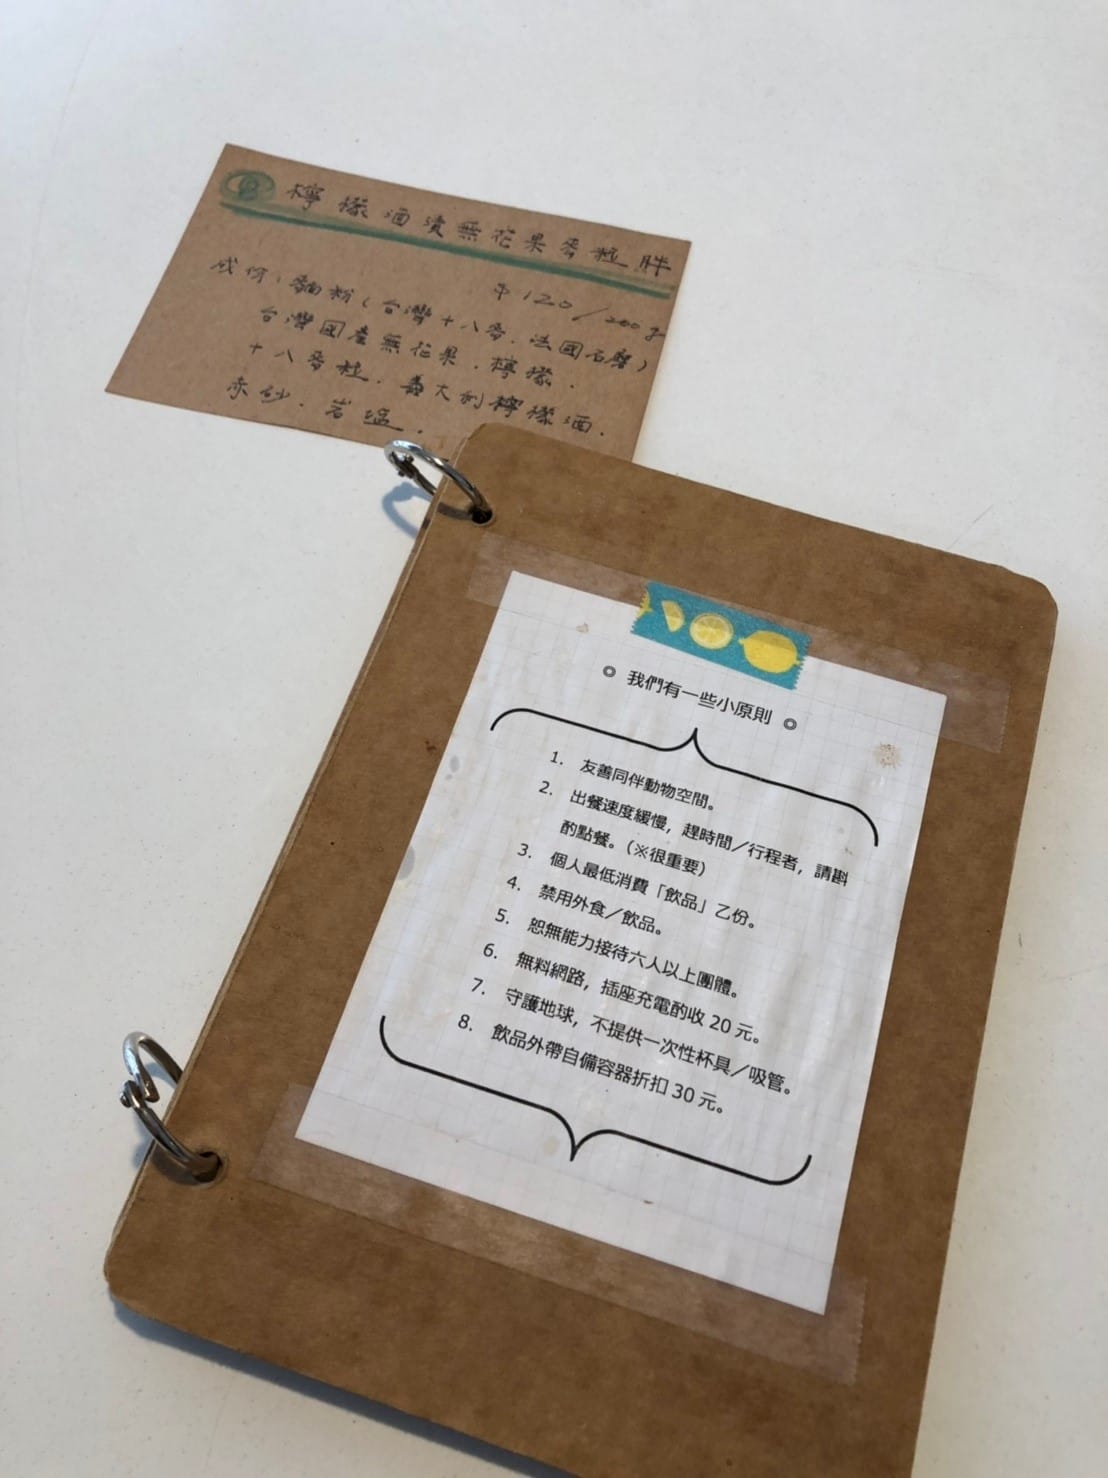 ⑧ 檸檬酒漬無花果麥粒胖
$120/200g
成份:麵粉(台灣十八麥.法國石磨)
台灣國產無花果.檸檬.
十八麥粒.義大利檸檬酒.
赤砂.岩塩.
◎ 我們有一些小原則 ◎
1. 友善同伴動物空間。
2. 出餐速度緩慢，趕時間／行程者，請斟
酌點餐。(※很重要)
3. 個人最低消費「飲品」乙份。
4. 禁用外食／飲品。
5. 恕無能力接待六人以上團體。
6. 無料網路，插座充電酌收 20 元。
7. 守護地球，不提供一次性杯具／吸管。
8. 飲品外帶自備容器折扣 30 元。